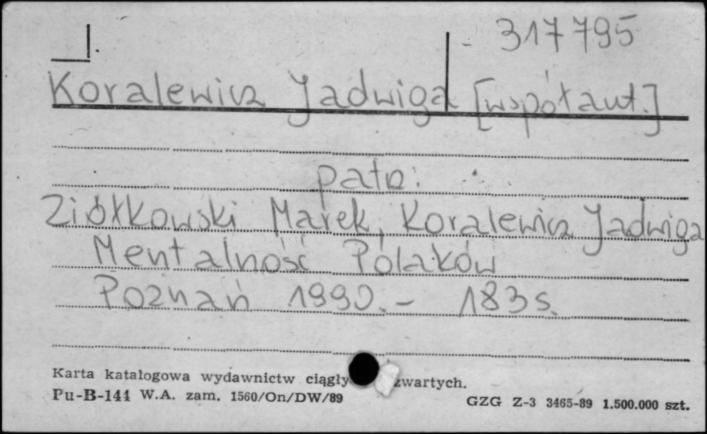 317795
Koralewicz Jadwiga [współaut.]
patrz:
Ziółkowski Marek, Koralewicz Jadwiga
Mentalność Polaków
Poznań 1990.- 183 s.
Karta katalogowa wydawnictw ciągły zwartych.
Pu-B-141 W.A. zam. 1560/On/DW/89
GZG Z-3 3465-89 1.500.000 szt.